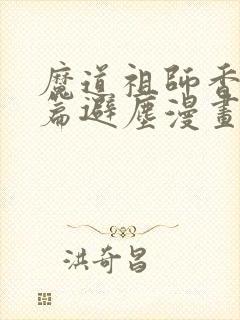 魔道祖師香
篇避塵漫畫
洪奇昌